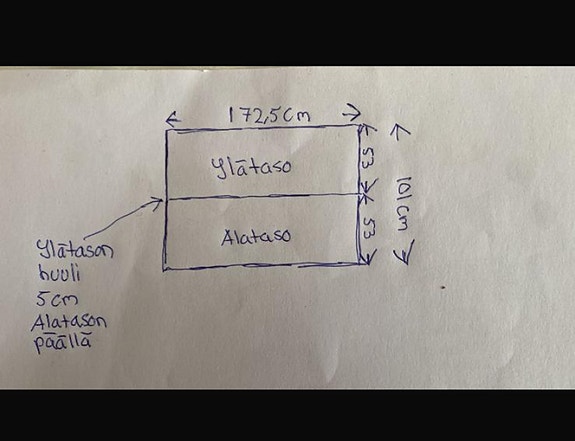 172,5cm
Ylätaso
53
101cm
Alataso
53
Ylätason
huuli
5cm
Alatason
päällä